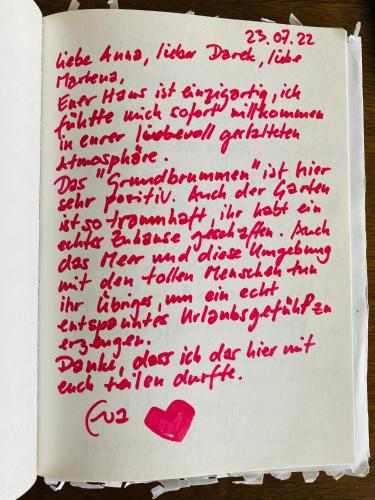 23.07.22
liebe Anna, lieber Darek, liebe
Martena,
Euer Haus ist einzigartig, ich
fühlte mich sofort willkommen
in eurer liebevoll gestalteten
Atmosphäre.
Das "Grundbrummen" ist hier
sehr positiv. Auch der Garten
ist so traumhaft, ihr habt ein
echtes Zuhause geschaffen. Auch
das Meer und diese Umgebung
mit den tollen Menschen tun
ihr Übriges, um ein echt
entspanntes Urlaubsgefühl zu
erzeugen.
Danke, dass ich das hier mit
euch teilen durfte.